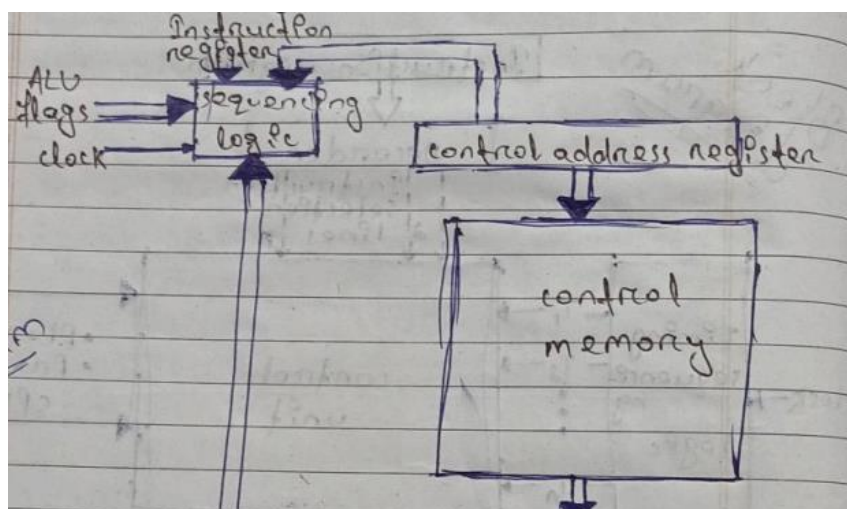 Instruction
register
ALU
flags
clock
sequencing
logic
control address register
control
memory